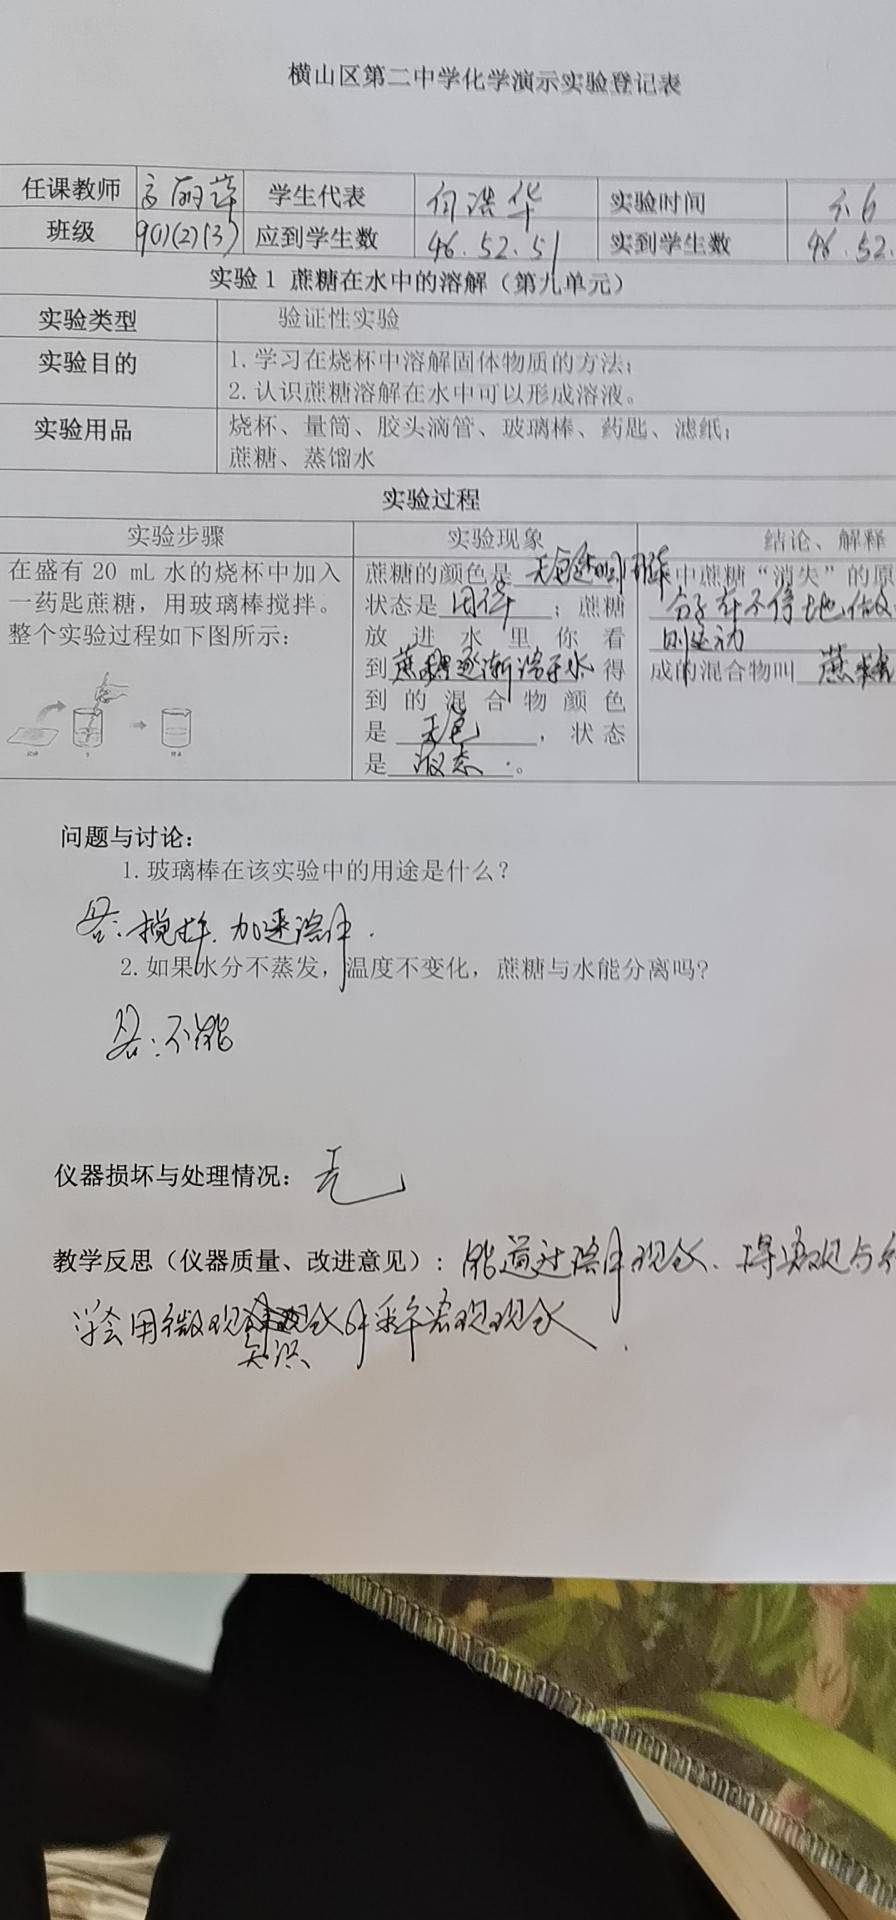 横山区第二中学化学演示实验登记表
任课教师 高丽萍 学生代表 何浩华 实验时间
班级 9(1)(2)(3) 应到学生数 46.52.51 实到学生数 46.52.
实验1 蔗糖在水中的溶解（第九单元）
实验类型 验证性实验
实验目的 1.学习在烧杯中溶解固体物质的方法；
2.认识蔗糖溶解在水中可以形成溶液。
实验用品 烧杯、量筒、胶头滴管、玻璃棒、药匙、滤纸；
蔗糖、蒸馏水
实验过程
实验步骤 实验现象 结论、解释
在盛有 20 mL 水的烧杯中加入
一药匙蔗糖，用玻璃棒搅拌。
整个实验过程如下图所示：
蔗糖的颜色是 无色透明
状态是 固体 ；蔗糖
放进水里你看
到 蔗糖逐渐溶于水 得
到的混合物颜色
是 无色 ，状态
是 液态 。
中蔗糖“消失”的原
分子在不停地做
则运动
成的混合物叫 蔗糖
问题与讨论：
1.玻璃棒在该实验中的用途是什么？
答：搅拌.加速溶解.
2.如果水分不蒸发，温度不变化，蔗糖与水能分离吗？
答：不能
仪器损坏与处理情况：无
教学反思（仪器质量、改进意见）：能通过溶解现象、将宏观与
学会用微观知识解释宏观现象.